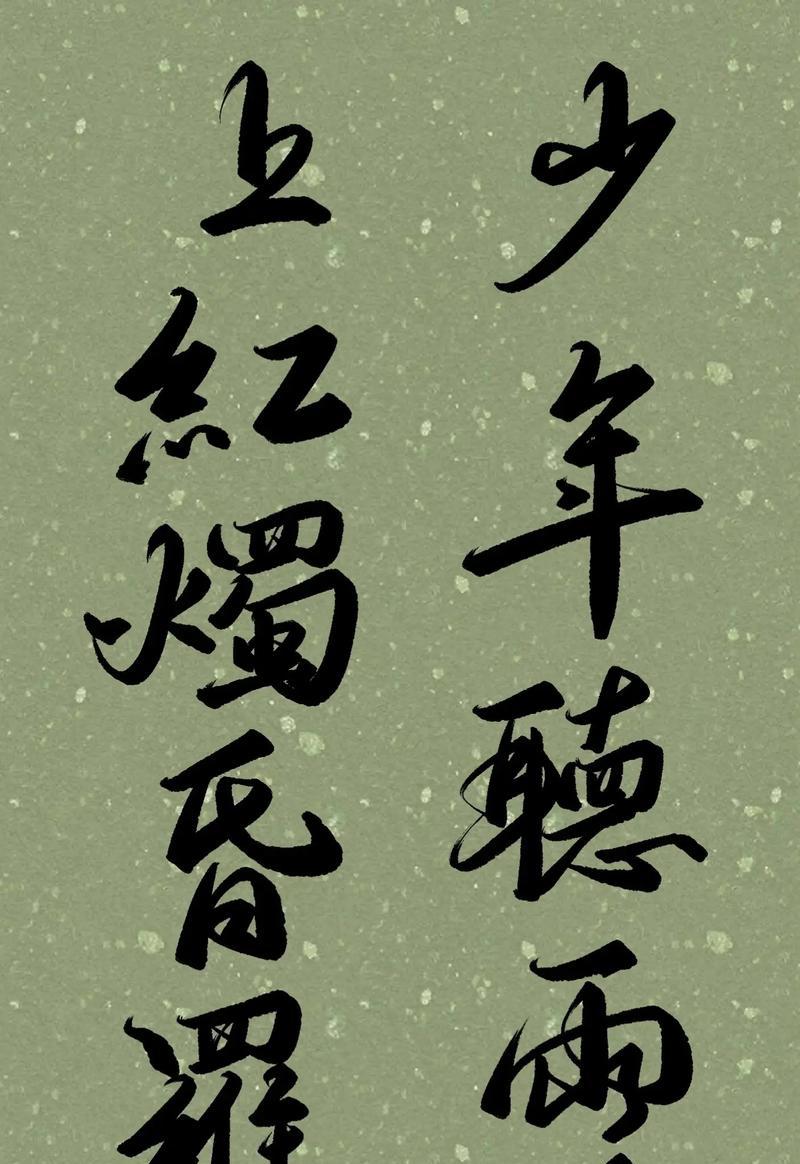 少年聽雨
上紅燭昏羅